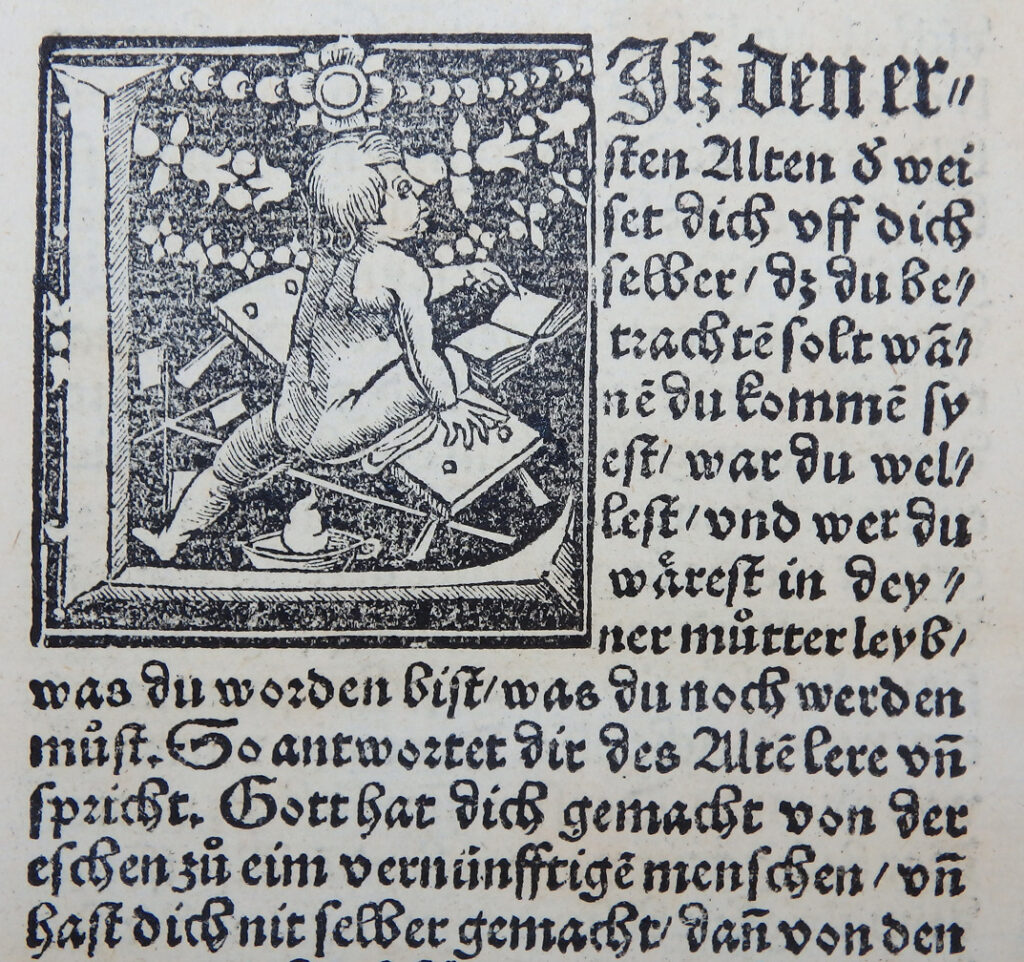 LIſz den er⸗
ſten Alten d̕ wei
ſet dich vff dich
ſelber / dz du be⸗
trachtē ſolt wā⸗
nē du kommē ſy
eſt / war du wel⸗
leſt / vnd wer du
wåreſt in dey⸗
ner mu̍tter leyb /
was du worden biſt / was du noch werden
mu̍ſt. So antwortet dir des Altē lere vn̄
ſpricht. Gott hat dich gemacht von der
eſchen zu̍ eim vernünfftigē menſchen / vn̄
haſt dich nit ſelber gemacht / dan̄ von den